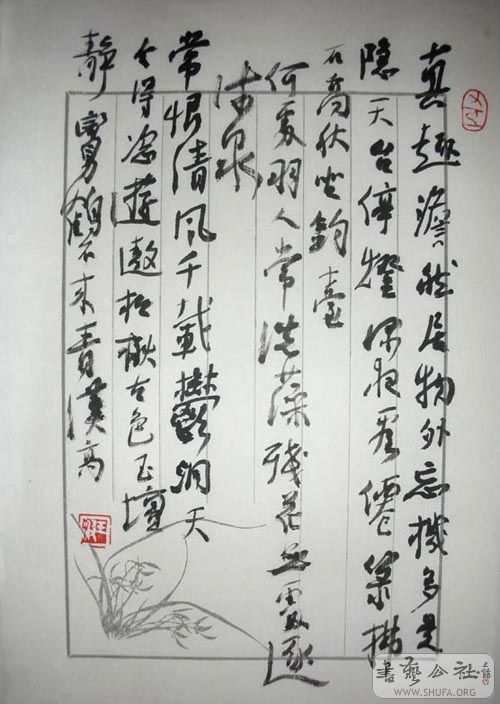 真趣澹然居物外忘機多是
隱天台停燈深夜看僊籙拂
石高秋坐釣臺
何處羽人常洗藥殘花無數逐
流泉
常恨清風千載鬱洞天
令得恣遊遨松楸古色玉壇
靜鸞鶴不來青漢高
書藝公社
WWW.SHUFA.ORG